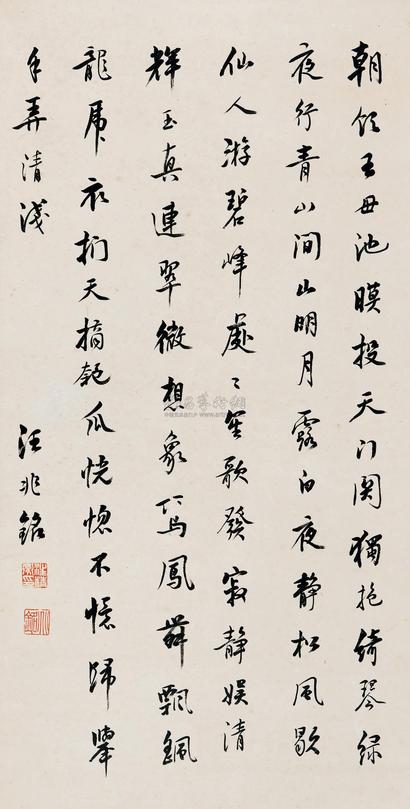 朝飲王母池暝投天门関獨抱綺琴緑
夜行青山间山明月露白夜静松风歇
仙人游碧峰處〻笙歌發寂静娱清
輝玉真連翠微想象鸞鳳舞飄飖
龍虎衣捫天摘匏瓜恍惚不憶歸舉
手弄清淺
汪兆銘